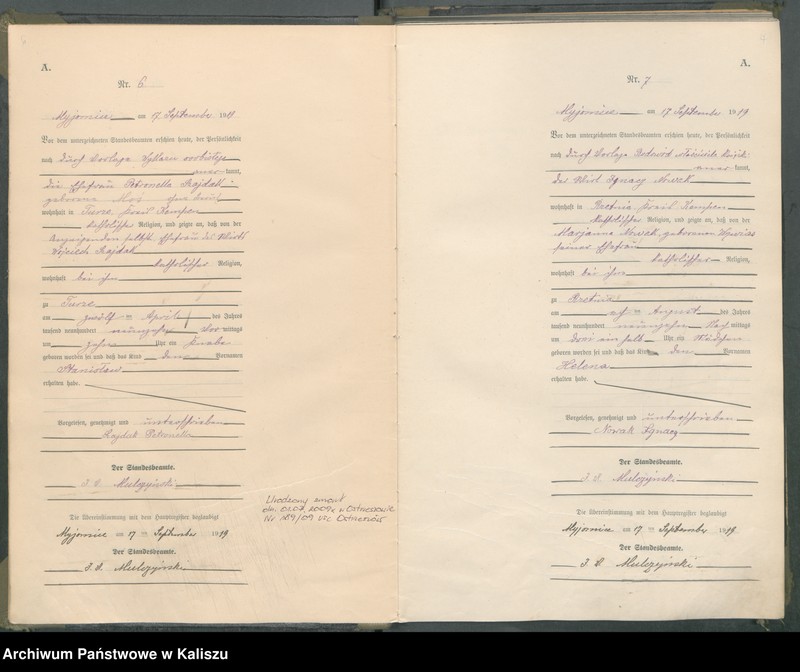 A.
Nr. 6
Myjomice am 17 September 1919
Vor dem unterzeichneten Standesbeamten erschien heute, der Persönlichkeit
nach durch Vorlage
kannt,
die Ehefrau Petronella Rajdak
geborene
wohnhaft in Turze, Kreis Kempen
katholischer Religion, und zeigte an, daß von der
Anzeigenden selbst, Ehefrau des Wirts
Wojciech Rajdak
katholischer Religion,
wohnhaft bei ihm
zu Turze
am zwölf ten April des Jahres
tausend neunhundert neunzehn Vor mittags
um zehn Uhr ein Knabe
geboren worden sei und daß das Kind den Vornamen
Stanislaw
erhalten habe.
Vorgelesen, genehmigt und unterschrieben
Rajdak Petronela
Der Standesbeamte.
Die Übereinstimmung mit dem Hauptregister beglaubigt
Myjomice am 17 ten September 1919
Der Standesbeamte.
Urodzony zmarł
dn. 2009r. w Ostrzeszowie
Nr 189/09 USC Ostrzeszów
A.
Nr. 7
Myjomice am 17 September 1919
Vor dem unterzeichneten Standesbeamten erschien heute, der Persönlichkeit
nach durch Vorlage
kannt,
der Wirt Ignacy Nowak
wohnhaft in Kreis Kempen
katholischer Religion, und zeigte an, daß von der
Marjanna Nowak, geborenen
seiner Ehefrau
katholischer Religion,
wohnhaft bei ihm
zu
am ten August des Jahres
tausend neunhundert neunzehn Nach mittags
um drei ein halb Uhr ein Mädchen
geboren worden sei und daß das Kind den Vornamen
Helena
erhalten habe.
Vorgelesen, genehmigt und unterschrieben
Nowak Ignacy
Der Standesbeamte.
Die Übereinstimmung mit dem Hauptregister beglaubigt
Myjomice am 17 ten September 1919
Der Standesbeamte.
Archiwum Państwowe w Kaliszu